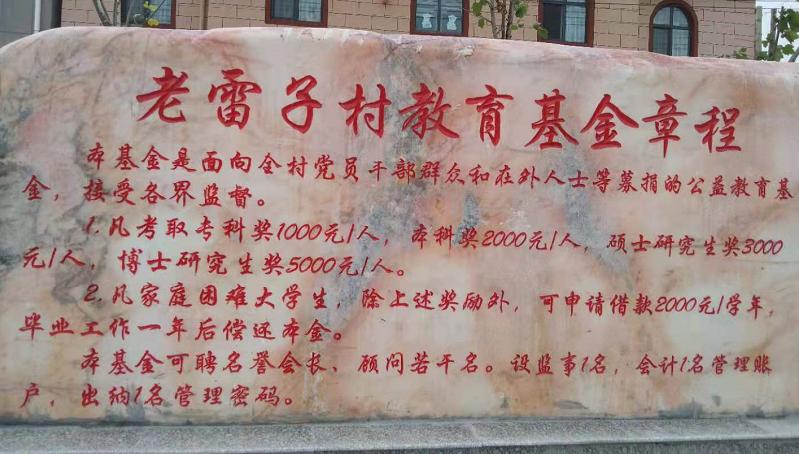 老雷子村教育基金章程
本基金是面向全村党员干部群众和在外人士等募捐的公益教育基
金，接受各界监督。
1.凡考取专科奖1000元/人，本科奖2000元/人，硕士研究生奖3000
元/人，博士研究生奖5000元/人。
2.凡家庭困难大学生，除上述奖励外，可申请借款2000元/学年，
毕业工作一年后偿还本金。
本基金可聘名誉会长、顾问若干名。设监事1名，会计1名管理账
户，出纳1名管理密码。